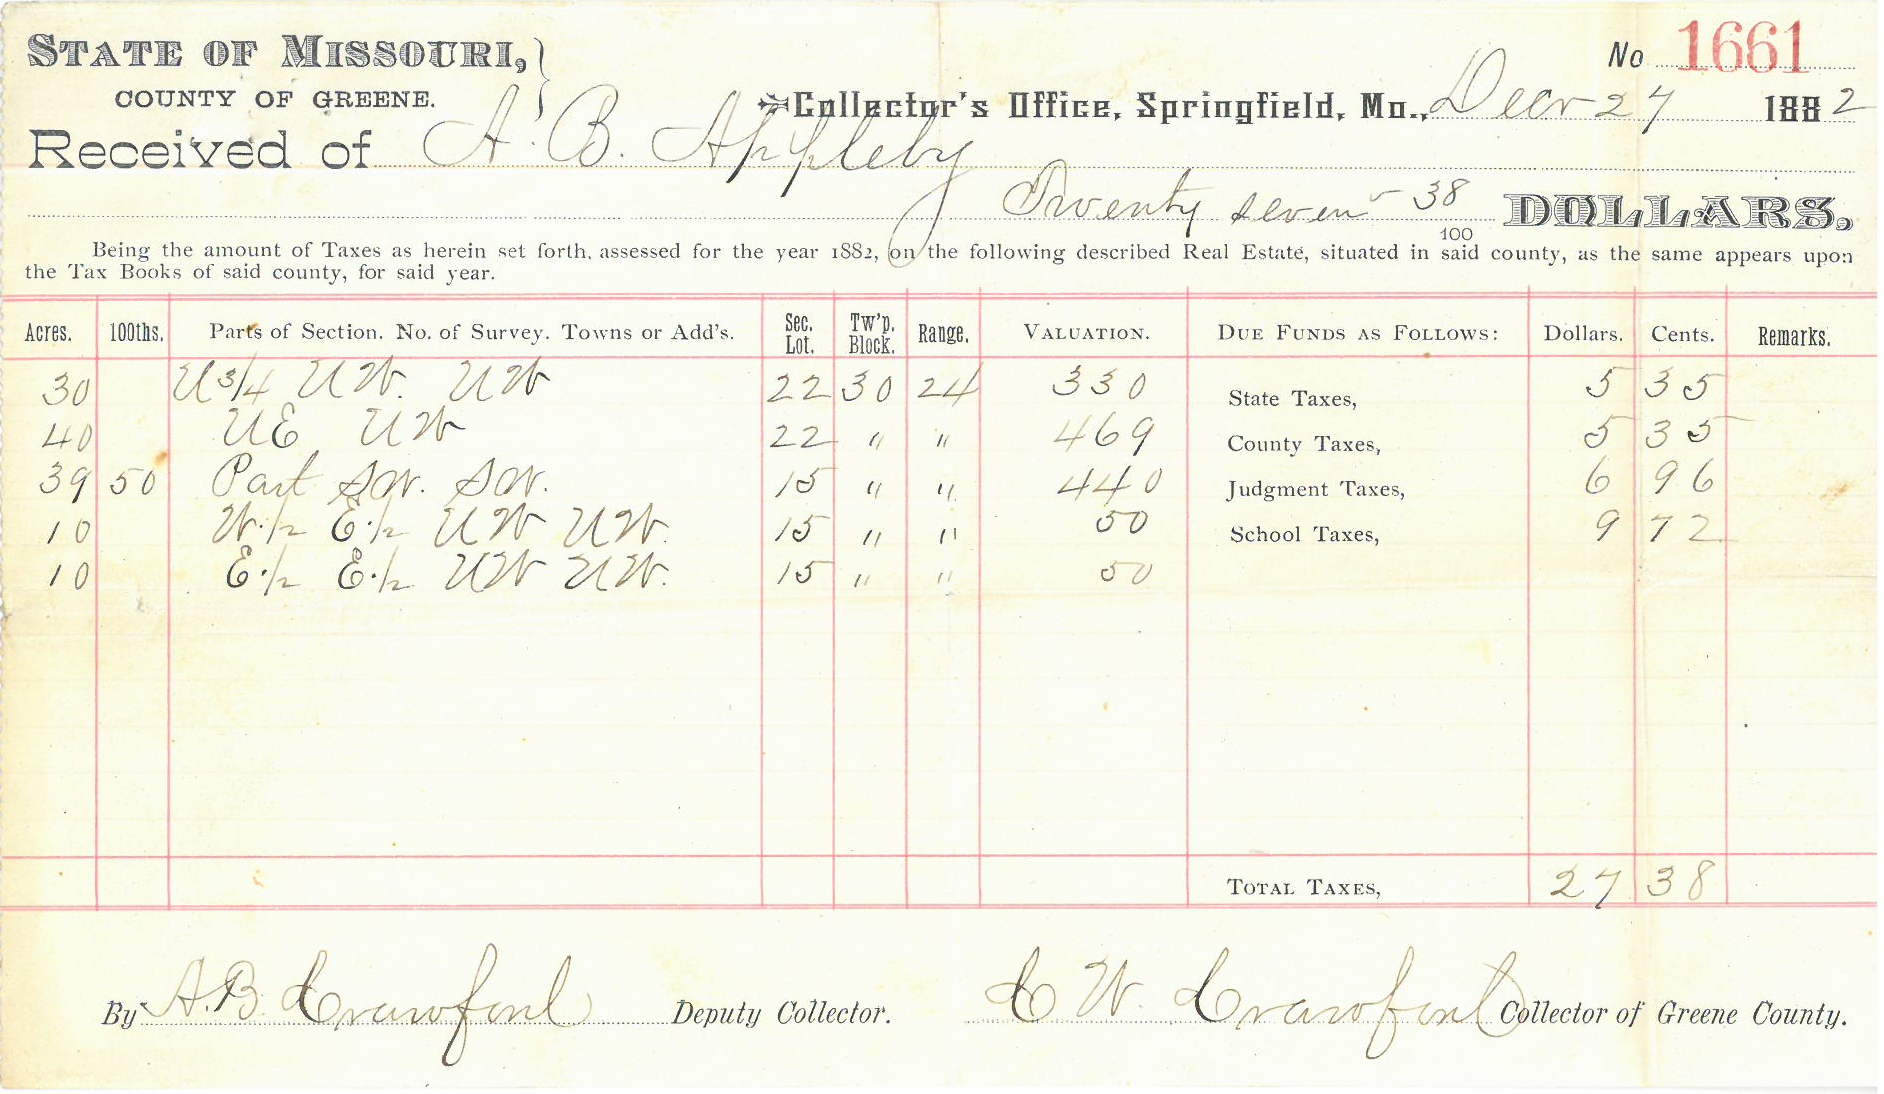 STATE OF MISSOURI,
COUNTY OF GREENE.
No 1661
Collector's Office, Springfield, Mo., Decr 27 1882
Received of A. B. Appleby
Twenty seven - 38/100 DOLLARS,
Being the amount of Taxes as herein set forth, assessed for the year 1882, on the following described Real Estate, situated in said county, as the same appears upon
the Tax Books of said county, for said year.
Acres. 100ths. Parts of Section. No. of Survey. Towns or Add's. Sec. Lot. Tw'p. Block. Range. VALUATION. DUE FUNDS AS FOLLOWS: Dollars. Cents. Remarks.
30 N 3/4 NW. NW 22 30 24 330 State Taxes, 5 35
40 NE NW 22 " " 469 County Taxes, 5 35
39 50 Part SW. SW. 15 " " 440 Judgment Taxes, 6 96
10 W. 1/2 E. 1/2 NW NW. 15 " " 50 School Taxes, 9 72
10 E. 1/2 E. 1/2 NW NW. 15 " " 50
TOTAL TAXES, 27 38
By A. B. Crawford Deputy Collector. C W. Crawford Collector of Greene County.